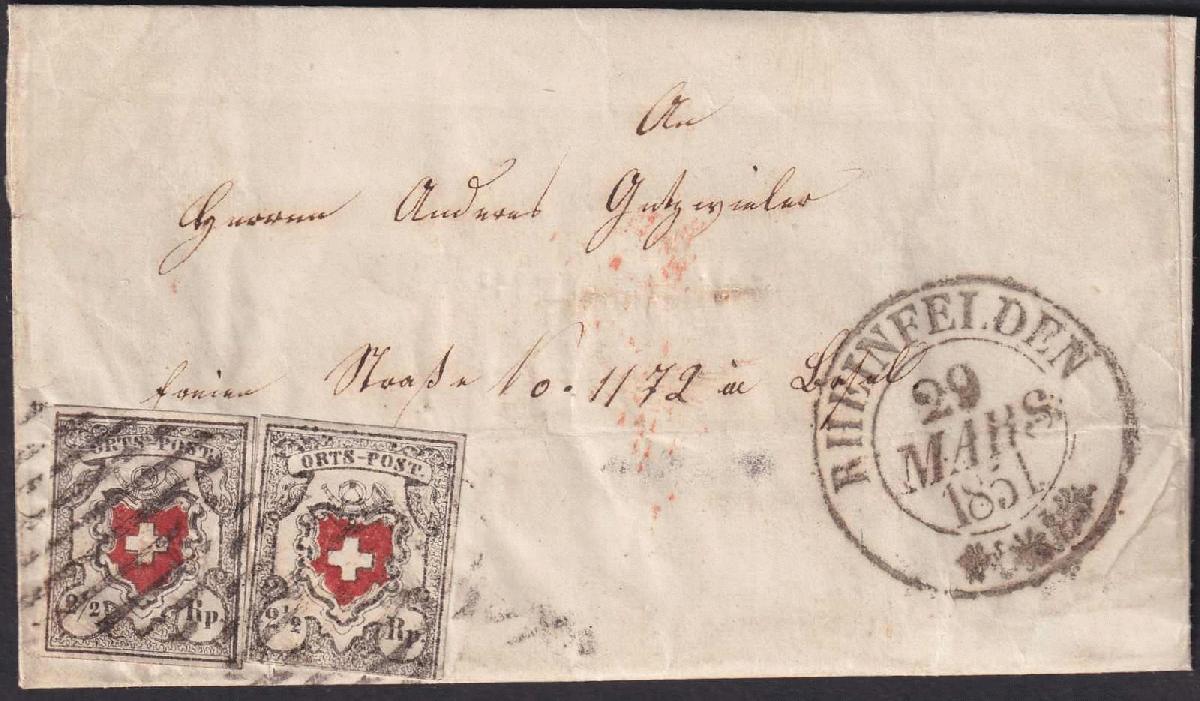 An
Herren Anderes Gutzwieler
freien Straße No. 1172 in Basel
RHEINFELDEN
29
MARS
1851
ORTS-POST.
2 1/2 Rp.
ORTS-POST.
2 1/2 Rp.